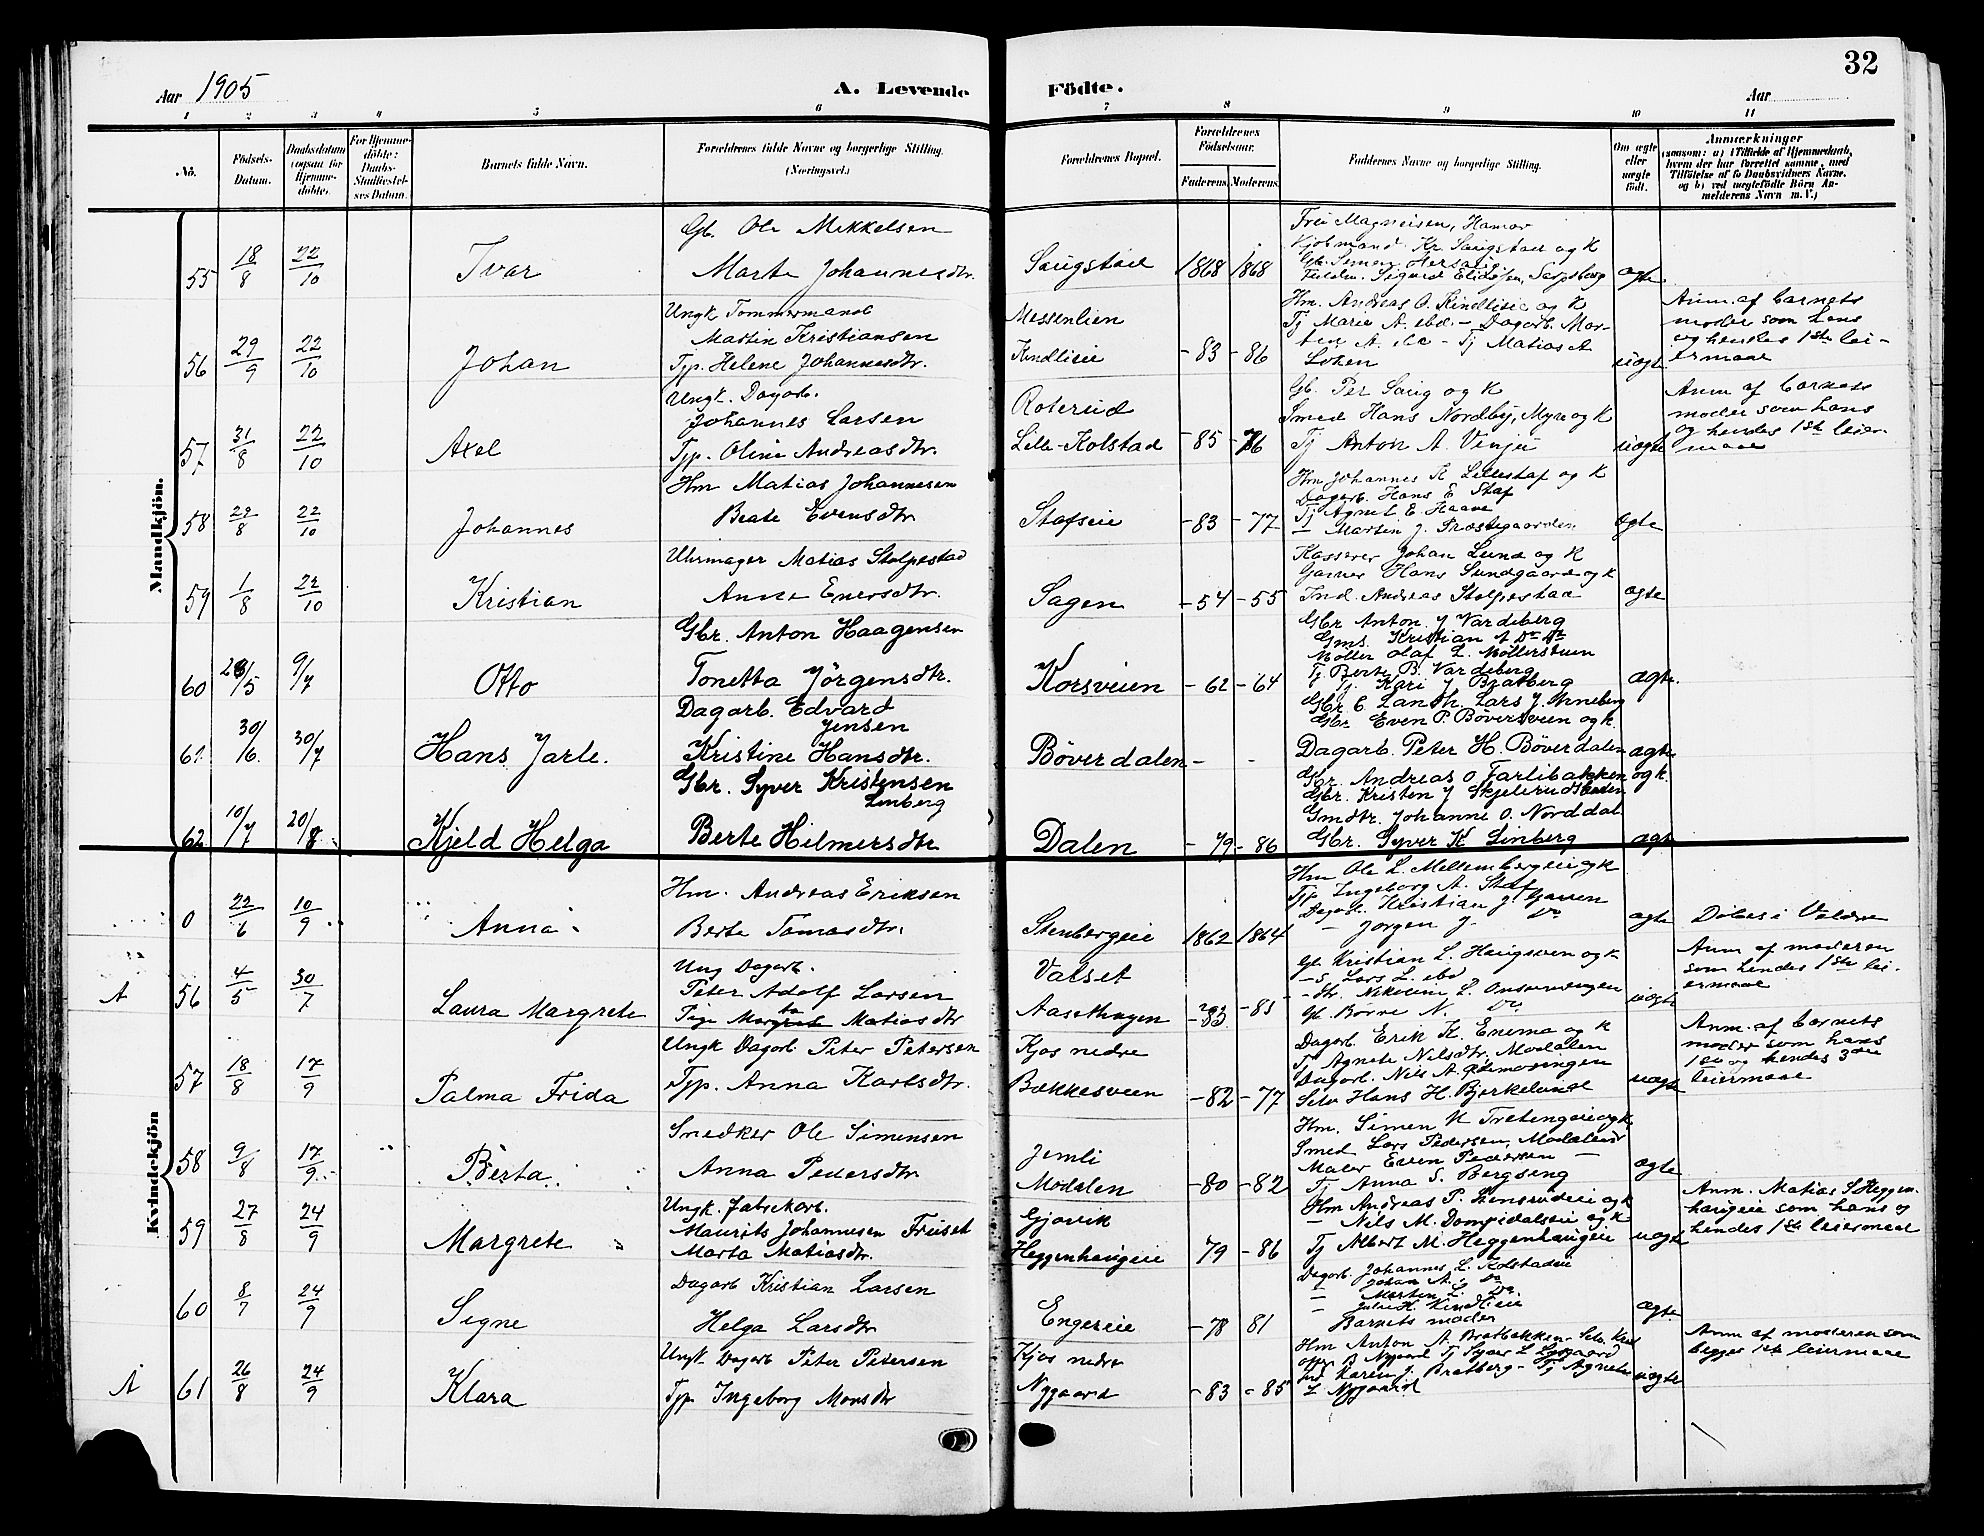 32
Aar 1905
A. Levende Födte.
Aar
1 2 3 4 5 6 7 8 9 10 11
No.
Födsels-Datum.
Daabsdatum (ogsaa for Hjemme-döbte).
For Hjemme-döbte: Daabs-Stadfæstel-ses Datum.
Barnets fulde Navn.
Forældrenes fulde Navne og borgerlige Stilling. (Næringsvei.)
Forældrenes Bopæl.
Forældrenes Födselsaar.
Faderens. Moderens.
Faddernes Navne og borgerlige Stilling.
Om ægte eller uægte födt.
Anmærkninger
(saasom: a) i Tilfælde af Hjemmedaab, hvem der har forrettet samme, med Tilföielse af to Daabsvidners Navne, og b) ved uægtefödte Börn Anmelderens Navn m. V.)
Mandkjön.
55 18/8 22/10 Ivar
Gb. Ole Mikkelsen
Marte Johannesdtr.
Saugstad 1868 1868
Kjøbmand Kr. Saugstad og K
ægte
56 29/9 22/10 Johan
Ungk Tømmermand
Martin Kristiansen
Typ. Helene Johannesdtr.
Messenlien
Kindlieie -83 -86
Hm. Andreas O. Kindlieie og K
Tj Marie A. ibd. - Dagarb. Mor-
ten A. ibd - Tj Matias A
Loken
uægte
Anm. af barnets
moder som hans
og hendes 1ste lei-
ermaal
57 31/8 22/10 Axel
Ungk. Dagarb.
Johannes Larsen
Typ. Oline Andreasdtr.
Roterud
Lille-Kolstad -85 -76
Gb. Per Saug og K
Smed Hans Nordby, Myre og K
Tj Anton A. Venje
uægte
Anm af barnets
moder som hans
og hendes 1ste leier-
maal
58 22/8 22/10 Johannes
Hm Matias Johannesen
Beate Evensdtr
Stafseie -83 -77
Hm Johannes K. Lillestaf og K
Dagarb. Hans E. Staf
Tj Agnet E. Haave
- Martin J. Præstegaarden
ægte
59 1/8 22/10 Kristian
Uhrmager Matias Stolpestad
Anne Enersdtr.
Sagen -54 -55
Kasserer Johan Lund og K
Garver Hans Sundgaard og K
Ind. Andreas Stolpestad
ægte
60 28/5 9/7 Otto
Gbr. Anton Haagensen
Tonetta Jörgensdtr.
Korsveien -62 -64
Gbr Anton J Vardeberg
Gms. Kristian A Do Do
Møller Olaf L. Møllerstuen
Tj Berte B. Vardeberg
Tj. Kari J Bratberg
ægte.
61 30/6 30/7 Hans Jarle.
Dagarb. Edvard
Jensen
Kristine Hansdtr.
Böverdalen - -
Gbr Even P. Böversveen og K.
Dagarb. Peter H. Böverdalen
ægte
62 10/7 20/8 Kjeld Helge
Gbr. Syver Kristensen
Linberg
Berte Hilmersdtr
Dalen -79 -86
Gbr. Andreas O Farlibakken og K.
Gbr. Kristen J
Gmdtr. Johanne O. Norddal
Gbr. Syver K Linberg
ægte
Kvindekjön
0 22/6 10/9 Anna
Hm. Andreas Eriksen
Berte Tomasdtr.
Stenbergeie 1862 1864
Hm Ole L. Mellembergeie og K
Tj. Ingeborg A. Staf
Dagarb. Kristian J.
- Jörgen J. Do
ægte
Döbes i Valdre
A 56 4/5 30/7 Laura Margrete
Ung Dagarb.
Peter Adolf Larsen
Margreta Matiasdtr
Valset
Aasethagen -83 -83
Gb Kristian L. Haugsveen og K
- S. Lars L. ibd
Gb. Börre N. Do
uægte
Anm af moderen
som hendes 1ste lei-
ermaal
57 18/8 17/9 Palma Frida
Ungk Dagarb. Peter Petersen
Typ. Anna Karlsdtr.
Kjos nedre
Bækkesveen -82 -77
Dagarb Erik K. Enema og K
Tj Agnete Nilsdtr. Modalen
Selv Hans H. Bjerkelund
uægte
Anm. af barnets
moder som hans
1ste og hendes 3die
leiermaal
58 9/8 17/9 Berta
Snedker Ole Simensen
Anna Pedersdtr.
Jemli
Modalen -80 -82
Hm. Simen N Tretengeie og K
Smed Lars Pedersen, Modalen
Maler Even Pedersen -
Tj Anna S. Bergseng
ægte
59 27/8 24/9 Margrete
Ungk. Fabrikarb.
Maurits Johannesen Freiset
Marta Matiasdtr.
Gjøvik
Heggenhaugeie 79 -86
Hm Andreas P. Stensrudeie og K
- Nils M. Dompidalseie og K
Tj Albert M. Heggenhaugeie
uægte
Anm. Matias S Heggen-
haugeie som hans og
hendes 1ste leiermaal
60 8/7 24/9 Signe
Dagarb Kristian Larsen
Helga Larsdtr
Engereie -78 81
Dagarb. Johannes L. Kolstadeie
- Johan A. Do
- Morten L. Do.
- Julius H. Kindlieie
Barnets moder
ægte
A 61 26/8 24/9 Klara
Ungk Dagarb Peter Petersen
Typ Ingeborg Monsdtr
Kjos nedre
Nygaard -83 -85
Hm Anton A. Bratbakken -
Karen J. Bratberg - Tj Agnete
L Nygaard
uægte
Anm af moderen som
begges 1ste leiermaal